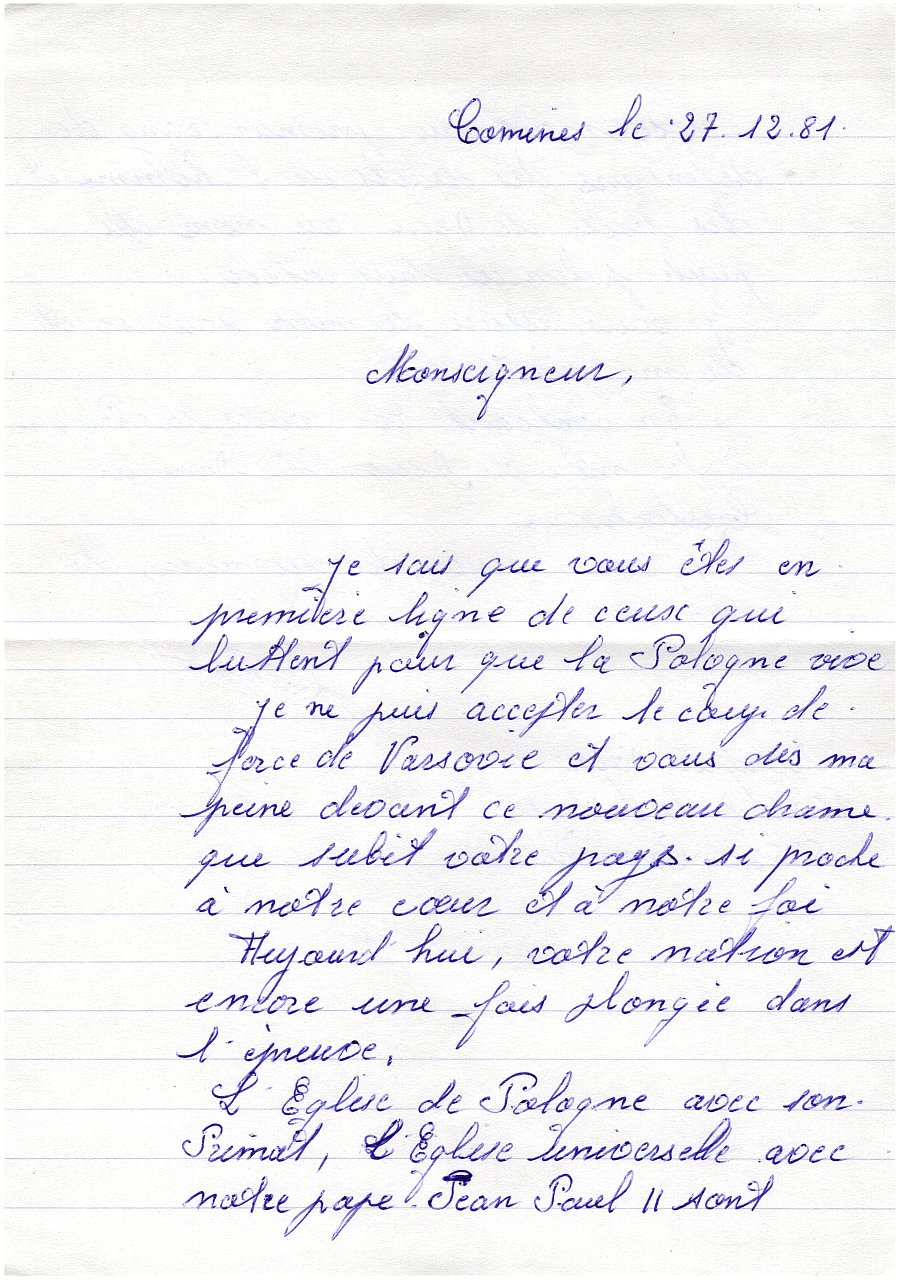 Comines le 27.12.81.
Monseigneur,
Je sais que vous êtes en
première ligne de ceux qui
luttent pour que la Pologne vive
Je ne puis accepter le coup de
force de Varsovie et vous dis ma
peine devant ce nouveau drame
que subit votre pays si proche
à notre cœur et à notre foi
Aujourd'hui, votre nation est
encore une fois plongée dans
l'épreuve.
L'Eglise de Pologne avec son
Primat, L'Eglise universelle avec
notre pape Jean Paul II sont